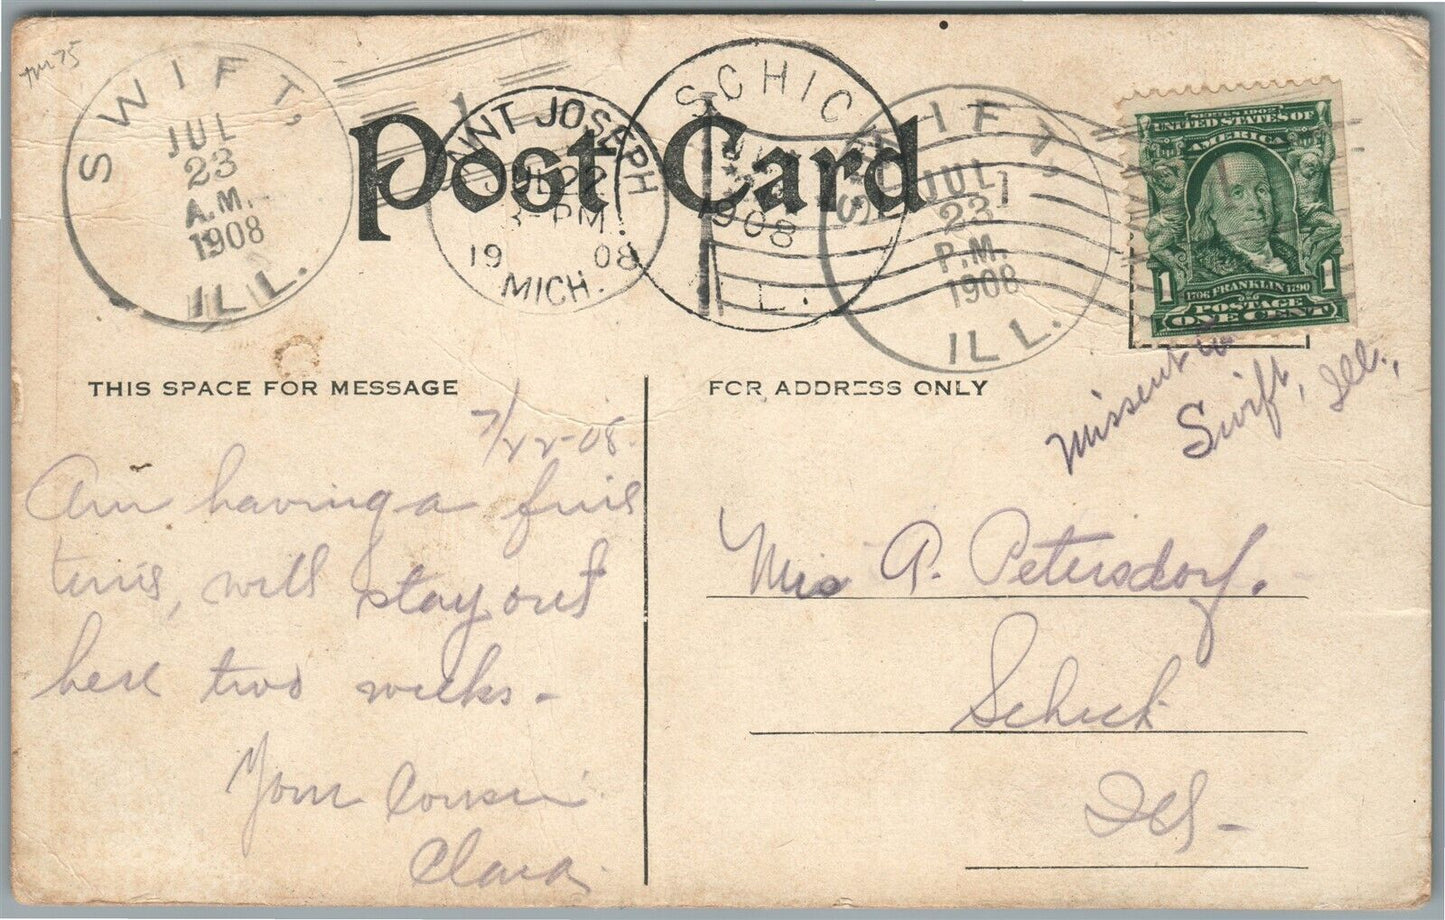 SWIFT,
JUL
23
A.M.
1908
ILL.
SAINT JOSEPH
JUL 22
3-PM
19 08
MICH.
SCHICK
1908
ILL.
SWIFT,
JUL
23
P.M.
1908
ILL.
Post Card
SERIES 1902
UNITED STATES OF
AMERICA
1 1
1706 FRANKLIN 1790
POSTAGE
ONE CENT
Missent to
Swift, Ill.,
THIS SPACE FOR MESSAGE
7/22-08.
Am having a fine
time, will stay out
here two weeks-
Your Cousin
Clara.
FOR ADDRESS ONLY
Mrs A. Petersdorf.
Schick
Ill-